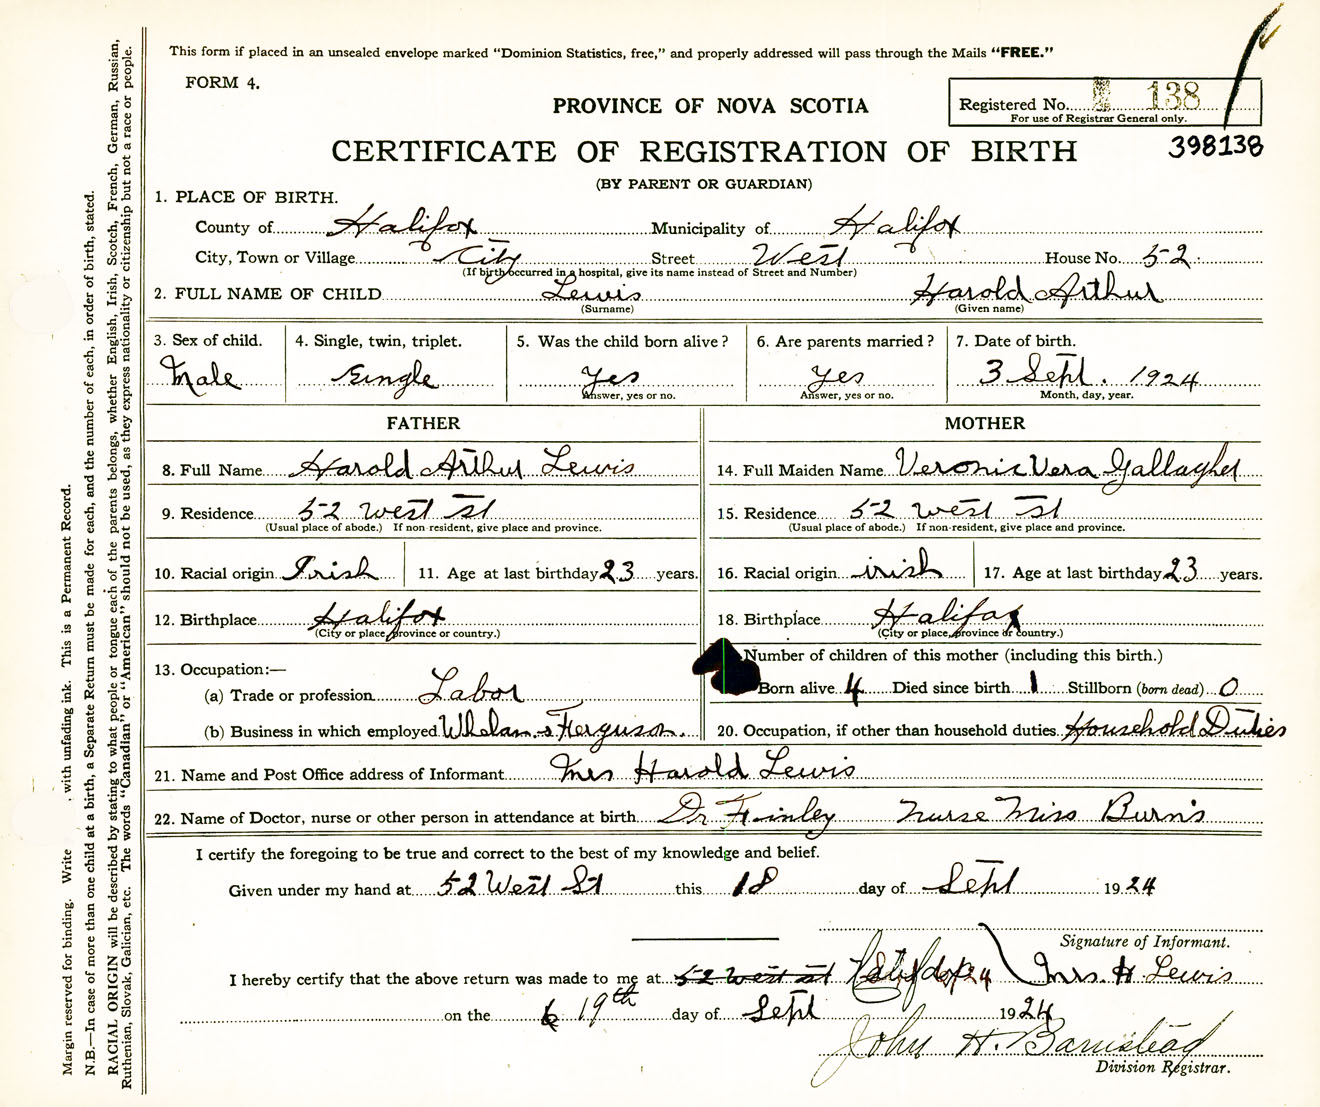 This form if placed in an unsealed envelope marked "Dominion Statistics, free," and properly addressed will pass through the Mails "FREE."
FORM 4.
PROVINCE OF NOVA SCOTIA
Registered No. 138
For use of Registrar General only.
CERTIFICATE OF REGISTRATION OF BIRTH
398138
(BY PARENT OR GUARDIAN)
1. PLACE OF BIRTH.
County of Halifax Municipality of Halifax
City, Town or Village City Street West House No. 52
(If birth occurred in a hospital, give its name instead of Street and Number)
2. FULL NAME OF CHILD Lewis Harold Arthur
(Surname) (Given name)
3. Sex of child. 4. Single, twin, triplet. 5. Was the child born alive? 6. Are parents married? 7. Date of birth.
Male Single Yes Yes 3 Sept. 1924
Answer, yes or no. Answer, yes or no. Month, day, year.
FATHER MOTHER
8. Full Name Harold Arthur Lewis 14. Full Maiden Name Veronic Vera Gallagher
9. Residence 52 West St 15. Residence 52 West St
(Usual place of abode.) If non-resident, give place and province. (Usual place of abode.) If non-resident, give place and province.
10. Racial origin Irish 11. Age at last birthday 23 years. 16. Racial origin irish 17. Age at last birthday 23 years.
12. Birthplace Halifax 18. Birthplace Halifax
(City or place, province or country.) (City or place, province or country.)
Number of children of this mother (including this birth.)
13. Occupation:—
(a) Trade or profession Labor Born alive 4 Died since birth 1 Stillborn (born dead) 0
(b) Business in which employed Whelan & Ferguson. 20. Occupation, if other than household duties Household Duties
21. Name and Post Office address of Informant Mrs Harold Lewis
22. Name of Doctor, nurse or other person in attendance at birth Dr Finley Nurse Miss Burn's
I certify the foregoing to be true and correct to the best of my knowledge and belief.
Given under my hand at 52 West St this 18 day of Sept 1924
Signature of Informant.
I hereby certify that the above return was made to me at 52 West St Mrs. H Lewis
on the 19th day of Sept 1924
John H. Barnstead
Division Registrar.
Margin reserved for binding. Write with unfading ink. This is a Permanent Record.
N.B.—In case of more than one child at a birth, a Separate Return must be made for each, and the number of each, in order of birth, stated.
RACIAL ORIGIN will be described by stating to what people or tongue each of the parents belongs, whether English, Irish, Scotch, French, German, Russian,
Ruthenian, Slovak, Galician, etc. The words "Canadian" or "American" should not be used, as they express nationality or citizenship but not a race or people.